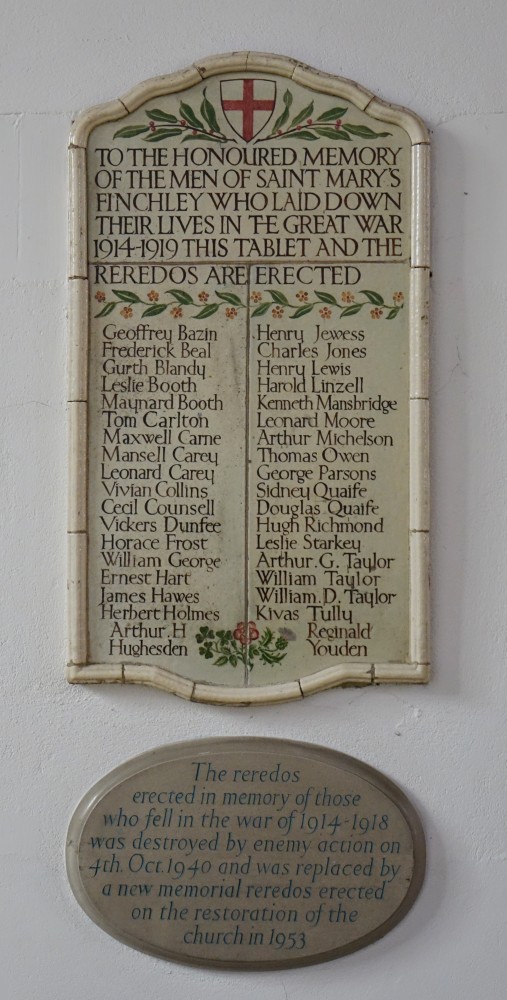 TO THE HONOURED MEMORY
OF THE MEN OF SAINT MARY'S
FINCHLEY WHO LAID DOWN
THEIR LIVES IN THE GREAT WAR
1914-1919 THIS TABLET AND THE
REREDOS ARE ERECTED
Geoffrey Bazin
Frederick Beal
Gurth Blandy
Leslie Booth
Maynard Booth
Tom Carlton
Maxwell Carne
Mansell Carey
Leonard Carey
Vivian Collins
Cecil Counsell
Vickers Dunfee
Horace Frost
William George
Ernest Hart
James Hawes
Herbert Holmes
Arthur. H
Hughesden
Henry Jewess
Charles Jones
Henry Lewis
Harold Linzell
Kenneth Mansbridge
Leonard Moore
Arthur Michelson
Thomas Owen
George Parsons
Sidney Quaife
Douglas Quaife
Hugh Richmond
Leslie Starkey
Arthur. G. Taylor
William Taylor
William. D. Taylor
Kivas Tully
Reginald
Youden
The reredos
erected in memory of those
who fell in the war of 1914-1918
was destroyed by enemy action on
4th. Oct. 1940 and was replaced by
a new memorial reredos erected
on the restoration of the
church in 1953